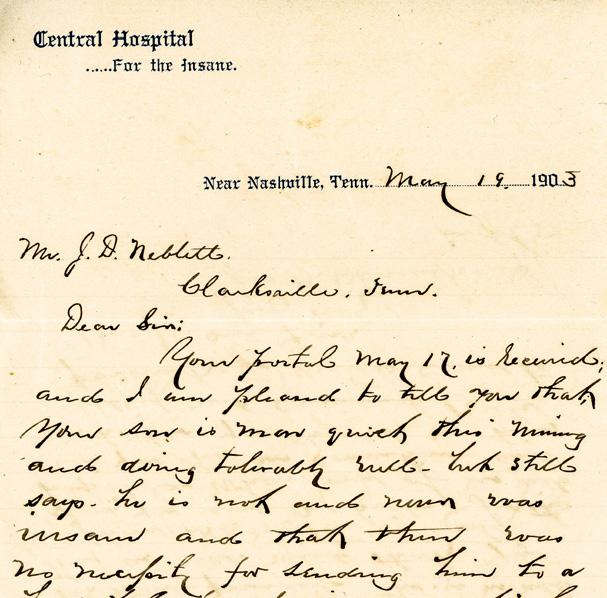 Central Hospital
......For the Insane.
Near Nashville, Tenn. May 19. 1903
Mr. J. D. Neblett.
Clarksville. Tenn.
Dear Sir:
Your postal May 17. is received;
and I am pleased to tell you that
your son is more quiet this morning
and doing tolerably well - but still
says. he is not and never was
insane and that there was
no necessity for sending him to a